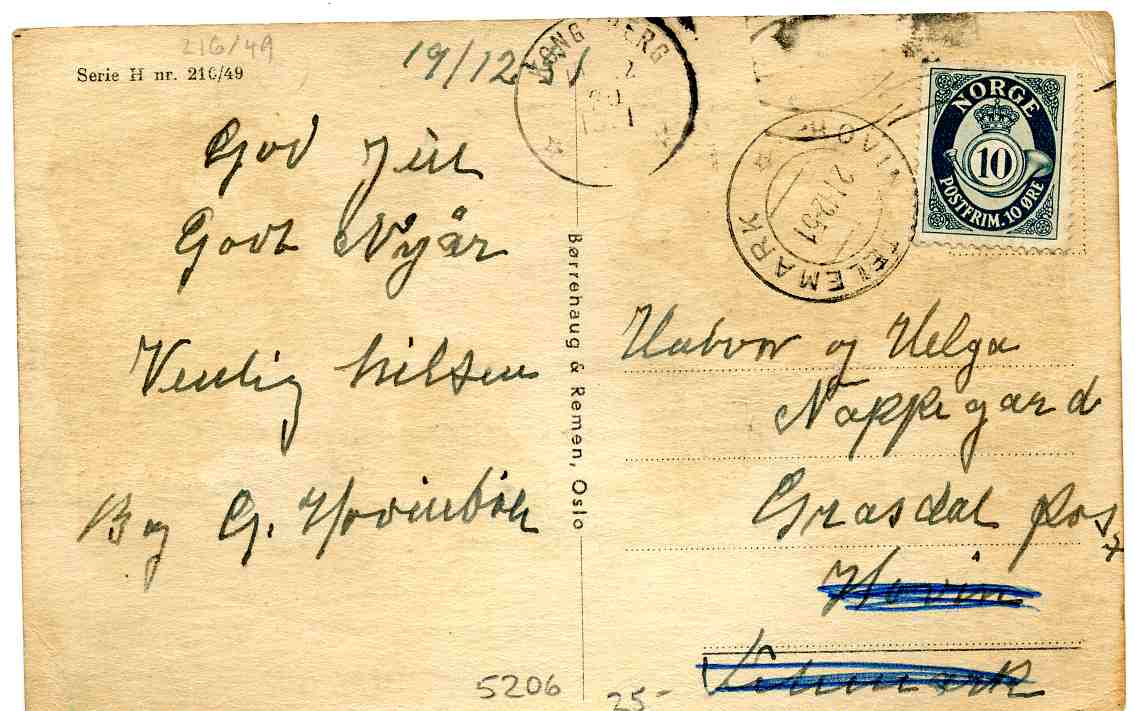 216/49
Serie H nr. 216/49
19/12-51
God Jul
Godt Nyår
Venlig hilsen
B og G. Hovinbøle
Børrehaug & Remen, Oslo
KONGSBERG
HOVIN I TELEMARK
21 12 51
NORGE
10
POSTFRIM. 10 ØRE
Halvor og Helga
Nappegard
Grasdal Post
Hovin
Telemark
5206
25-